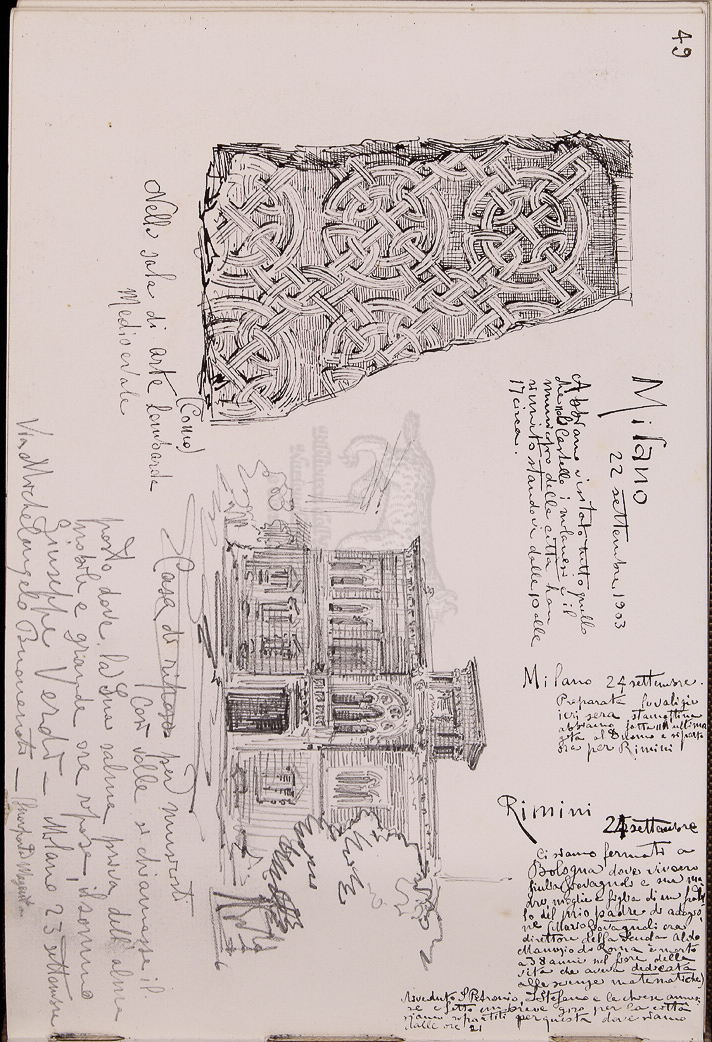 49
Milano
22 settembre 1903
Abbiamo visitato tutto quello
che nel Castello i milanesi e il
municipio della città han
riunito standovi dalle 10 alle
17 circa.
Nella sala di arte lombarda
Medioevale
(Como)
Milano 24 settembre.
Preparate le valigie
ieri sera stamattina
abbiamo fatta un'ultima
gita al Duomo e si parte
ora per Rimini
Rimini
24 settembre
Ci siamo fermati a
Bologna dove vivono
Giulia Govagnoli e sua ma
dre, moglie e figlia di un fratel
lo del mio padre di adozio
ne (Mario Govagnoli era
direttore della Scuola Aldo
Manuzio di Roma è morto
a 38 anni nel fiore della
vita che aveva dedicata
alle scienze matematiche)
Riveduto S. Petronio, S. Stefano e le chiese annes
se e fatto un breve giro per la città
siamo ripartiti per questa dove siamo
dalle ore 21
Casa di riposo per musicisti
Così volle si chiamasse il
posto dove la Sua salma priva dell'alma
nobile e grande ora riposa, il sommo
Giuseppe Verdi — Milano 23 settembre
Via Michelangelo Buonarroti —